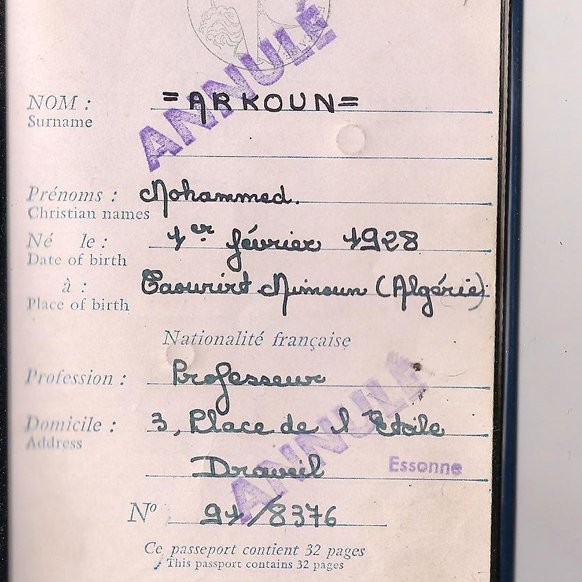 ANNULÉ
NOM : = ARKOUN =
Surname
Prénoms : Mohammed.
Christian names
Né le : 1er février 1928
Date of birth
à : Taourirt Mimoun (Algérie)
Place of birth
Nationalité française
Profession : Professeur
Domicile : 3, Place de l'Etoile
Address
Draveil Essonne
ANNULÉ
No 91/8376
Ce passeport contient 32 pages
This passport contains 32 pages